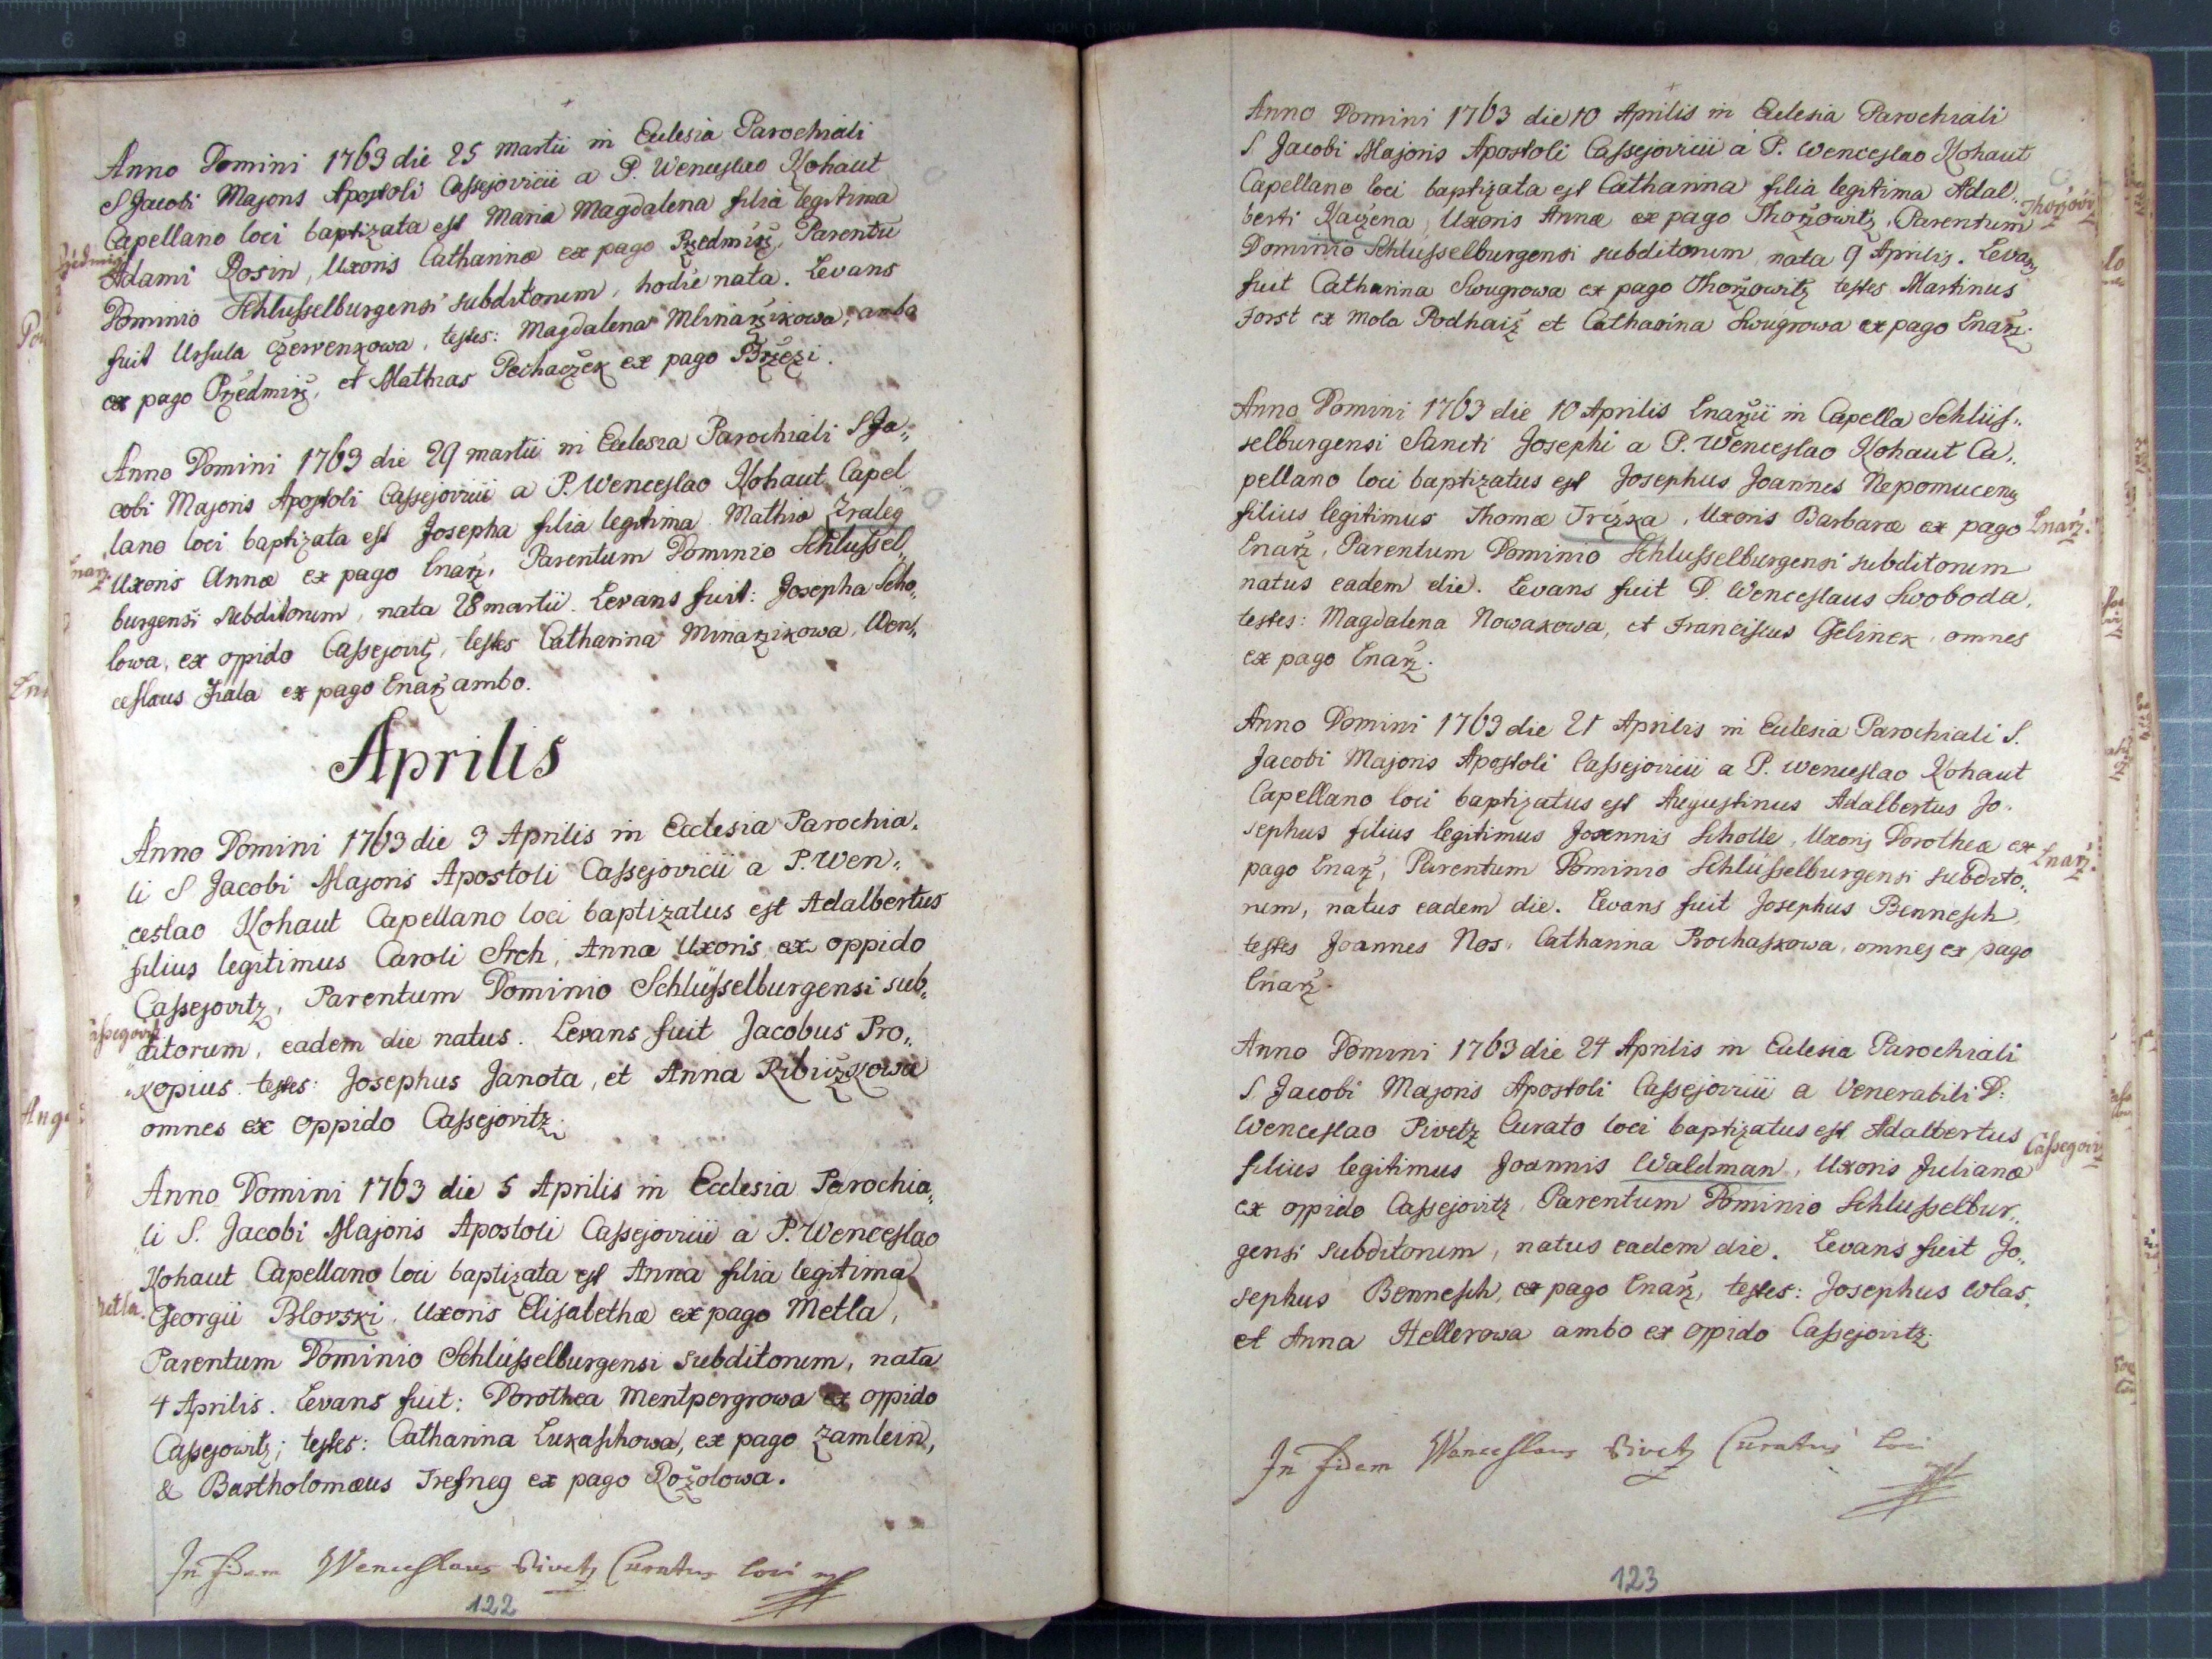 Anno Domini 1763 die 25 martii in Ecclesia Parochiali
S Jacobi Majoris Apostoli Cassejovicii a P. Wenceslao Kohaut
Capellano loci baptizata est Maria Magdalena filia legitima
Adami Rosin, Uxoris Catharinæ ex pago Przedmirz, Parentu
Dominio Schlusselburgensi subditorum, hodie nata. Levans
fuit Ursula Czerwenkowa, testes: Magdalena Mlinarzikowa, ambo
ex pago Przedmirz, et Mathias Pechaczek ex pago Brzezi.
Anno Domini 1763 die 29 martii in Ecclesia Parochiali S Ja„
cobi Majoris Apostoli Cassejovicii a P. Wenceslao Kohaut Capel
lano loci baptizata est Josepha filia legitima Mathiæ Zraleg
Enarz.
Uxoris Annæ ex pago Enarz, Parentum Dominio Schlussel„
burgensi subditorum, nata 28 martii. Levans fuit: Josepha Scho„
lowa, ex oppido Cassejovitz, testes Catharina Minarzikowa, Wen„
ceslaus Fiala ex pago Enarz ambo.
Aprilis
Anno Domini 1763 die 3 Aprilis in Ecclesia Parochia„
li S Jacobi Majoris Apostoli Cassejovicii a P. Wen„
„ceslao Kohaut Capellano loci baptizatus est Adalbertus
filius legitimus Caroli Srch, Anna Uxoris ex oppido
Cassejovitz, Parentum Dominio Schlüsselburgensi sub„
ditorum, eadem die natus. Levans fuit Jacobus Pro„
„kopius. testes: Josephus Janota, et Anna Ribiczkowa
omnes ex oppido Cassejovitz.
Anno Domini 1763 die 5 Aprilis in Ecclesia Parochia„
„li S. Jacobi Majoris Apostoli Cassejovicii a P. Wenceslao
Kohaut Capellano loci baptizata est Anna filia legitima
metla.
Georgii Blovski, Uxoris Elisabethæ ex pago Metla,
Parentum Dominio Schlüsselburgensi subditorum, nata
4 Aprilis. Levans fuit: Dorothea Mentpergrowa ex oppido
Cassejowitz; testes: Catharina Lukaschowa, ex pago Zamlein,
& Bartholomæus Tresneg ex pago Rožolowa.
In fidem Wenceslaus Pivetz Curatus loci
122
Anno Domini 1763 die 10 Aprilis in Ecclesia Parochiali
S Jacobi Majoris Apostoli Cassejovicii a P. Wenceslao Kohaut
Capellano loci baptizata est Catharina filia legitima Adal„
berti Kaczena, Uxoris Annæ ex pago Thorzowitz, Parentum
Dominio Schlusselburgensi subditorum, nata 9 Aprilis. Levans
fuit Catharina Swugrowa ex pago Thorzowitz testes Martinus
Forst ex mola Podhaiz et Catharina Swugrowa ex pago Enarz.
Anno Domini 1763 die 10 Aprilis Enarzii in Capella Schlüs„
selburgensi Sancti Josephi a P. Wenceslao Kohaut Ca„
pellano loci baptizatus est Josephus Joannes Nepomucenus
filius legitimus Thomæ Trczka, Uxoris Barbaræ ex pago
Enarz.
Enarz, Parentum Dominio Schlusselburgensi subditorum
natus eadem die. Levans fuit D. Wenceslaus Swoboda,
testes: Magdalena Nowakowa, et Franciscus Gelinek, omnes
ex pago Enarz.
Anno Domini 1763 die 21 Aprilis in Ecclesia Parochiali S.
Jacobi Majoris Apostoli Cassejovicii a P. Wenceslao Kohaut
Capellano loci baptizatus est Augustinus Adalbertus Jo„
sephus filius legitimus Joannis Scholle, Uxoris Dorotheæ ex
Enarz.
pago Enarz, Parentum Dominio Schlüsselburgensi subdito„
rum, natus eadem die. Levans fuit Josephus Bennesch,
testes Joannes Nos, Catharina Prochaskowa, omnes ex pago
Enarz.
Anno Domini 1763 die 24 Aprilis in Ecclesia Parochiali
S. Jacobi Majoris Apostoli Cassejovicii a Venerabili D:
Wenceslao Pivetz Curato loci baptizatus est Adalbertus
filius legitimus Joannis Waldman, Uxoris Julianæ
ex oppido Cassejovitz, Parentum Dominio Schlusselbur„
gensi subditorum, natus eadem die. Levans fuit Jo„
sephus Bennesch, ex pago Enarz, testes: Josephus Wlas,
et Anna Hellerowa ambo ex oppido Cassejovitz.
In fidem Wenceslaus Pivetz Curatus loci
123